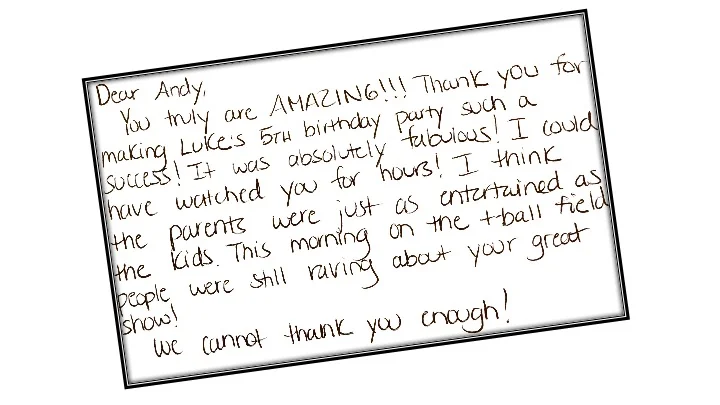 Dear Andy,
You truly are AMAZING!!! Thank you for
making Luke's 5TH birthday party such a
success! It was absolutely fabulous! I could
have watched you for hours! I think
the parents were just as entertained as
the kids. This morning on the t-ball field
people were still raving about your great
show!
We cannot thank you enough!